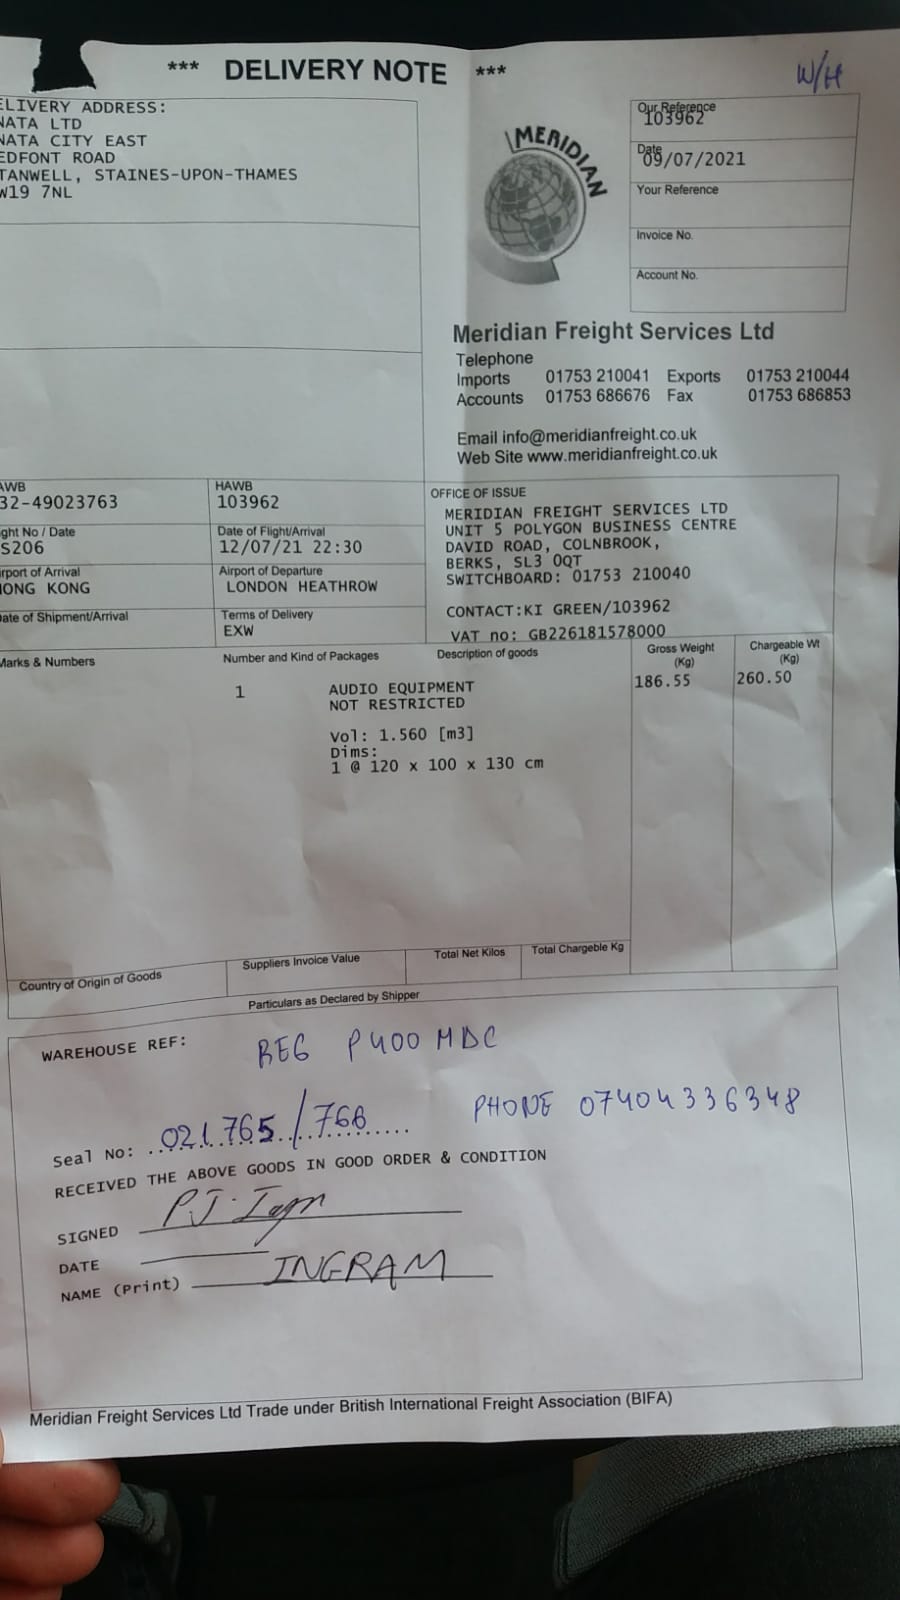 *** DELIVERY NOTE ***
W/H
ELIVERY ADDRESS:
NATA LTD
NATA CITY EAST
EDFONT ROAD
TANWELL, STAINES-UPON-THAMES
W19 7NL
MERIDIAN
Our Reference
103962
Date
09/07/2021
Your Reference
Invoice No.
Account No.
Meridian Freight Services Ltd
Telephone
Imports 01753 210041 Exports 01753 210044
Accounts 01753 686676 Fax 01753 686853
Email info@meridianfreight.co.uk
Web Site www.meridianfreight.co.uk
AWB
32-49023763
HAWB
103962
ght No / Date
S206
Date of Flight/Arrival
12/07/21 22:30
rport of Arrival
ONG KONG
Airport of Departure
LONDON HEATHROW
ate of Shipment/Arrival
Terms of Delivery
EXW
OFFICE OF ISSUE
MERIDIAN FREIGHT SERVICES LTD
UNIT 5 POLYGON BUSINESS CENTRE
DAVID ROAD, COLNBROOK,
BERKS, SL3 0QT
SWITCHBOARD: 01753 210040
CONTACT:KI GREEN/103962
VAT no: GB226181578000
Marks & Numbers
Number and Kind of Packages
Description of goods
Gross Weight
(Kg)
Chargeable Wt
(Kg)
1 AUDIO EQUIPMENT 186.55 260.50
NOT RESTRICTED
Vol: 1.560 [m3]
Dims:
1 @ 120 x 100 x 130 cm
Country of Origin of Goods
Suppliers Invoice Value
Total Net Kilos
Total Chargeable Kg
Particulars as Declared by Shipper
WAREHOUSE REF: REG P400 MDC
PHONE 07404336348
Seal No: 021765/766
RECEIVED THE ABOVE GOODS IN GOOD ORDER & CONDITION
SIGNED P.J.
DATE
NAME (Print) INGRAM
Meridian Freight Services Ltd Trade under British International Freight Association (BIFA)